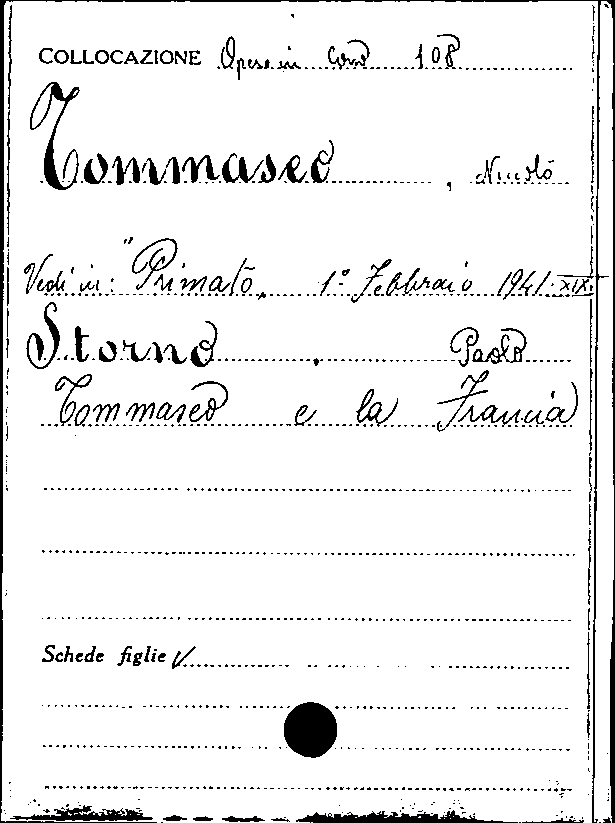 COLLOCAZIONE Opere in Corso 108
Tommaseo, Niccolò
Vedi in: "Primato, 1° Febbraio 1941·XIX·
Storno, Paolo
Tommaseo e la Francia
Schede figlie V